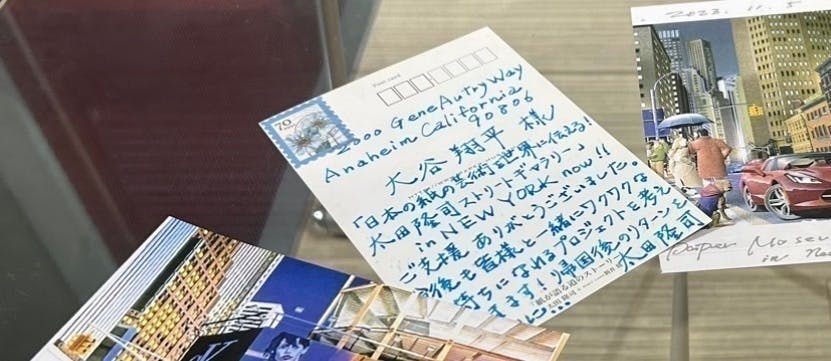 Post card
70
2000 Gene Autry Way
Anaheim California
90806
大谷 翔平 様
「日本の紙の芸術を世界に伝える!
太田隆司ストリートギャラリー」
in NEW YORK now!!
ご支援 ありがとうございました。
今後も皆様と一緒にワクワクな
持ちになれるプロジェクトを考え
ます!帰国後のリターンを
に!!!
太田隆司
紙が語る道のストーリー
太田隆司
2023. 11. 5
Paper Museum
in